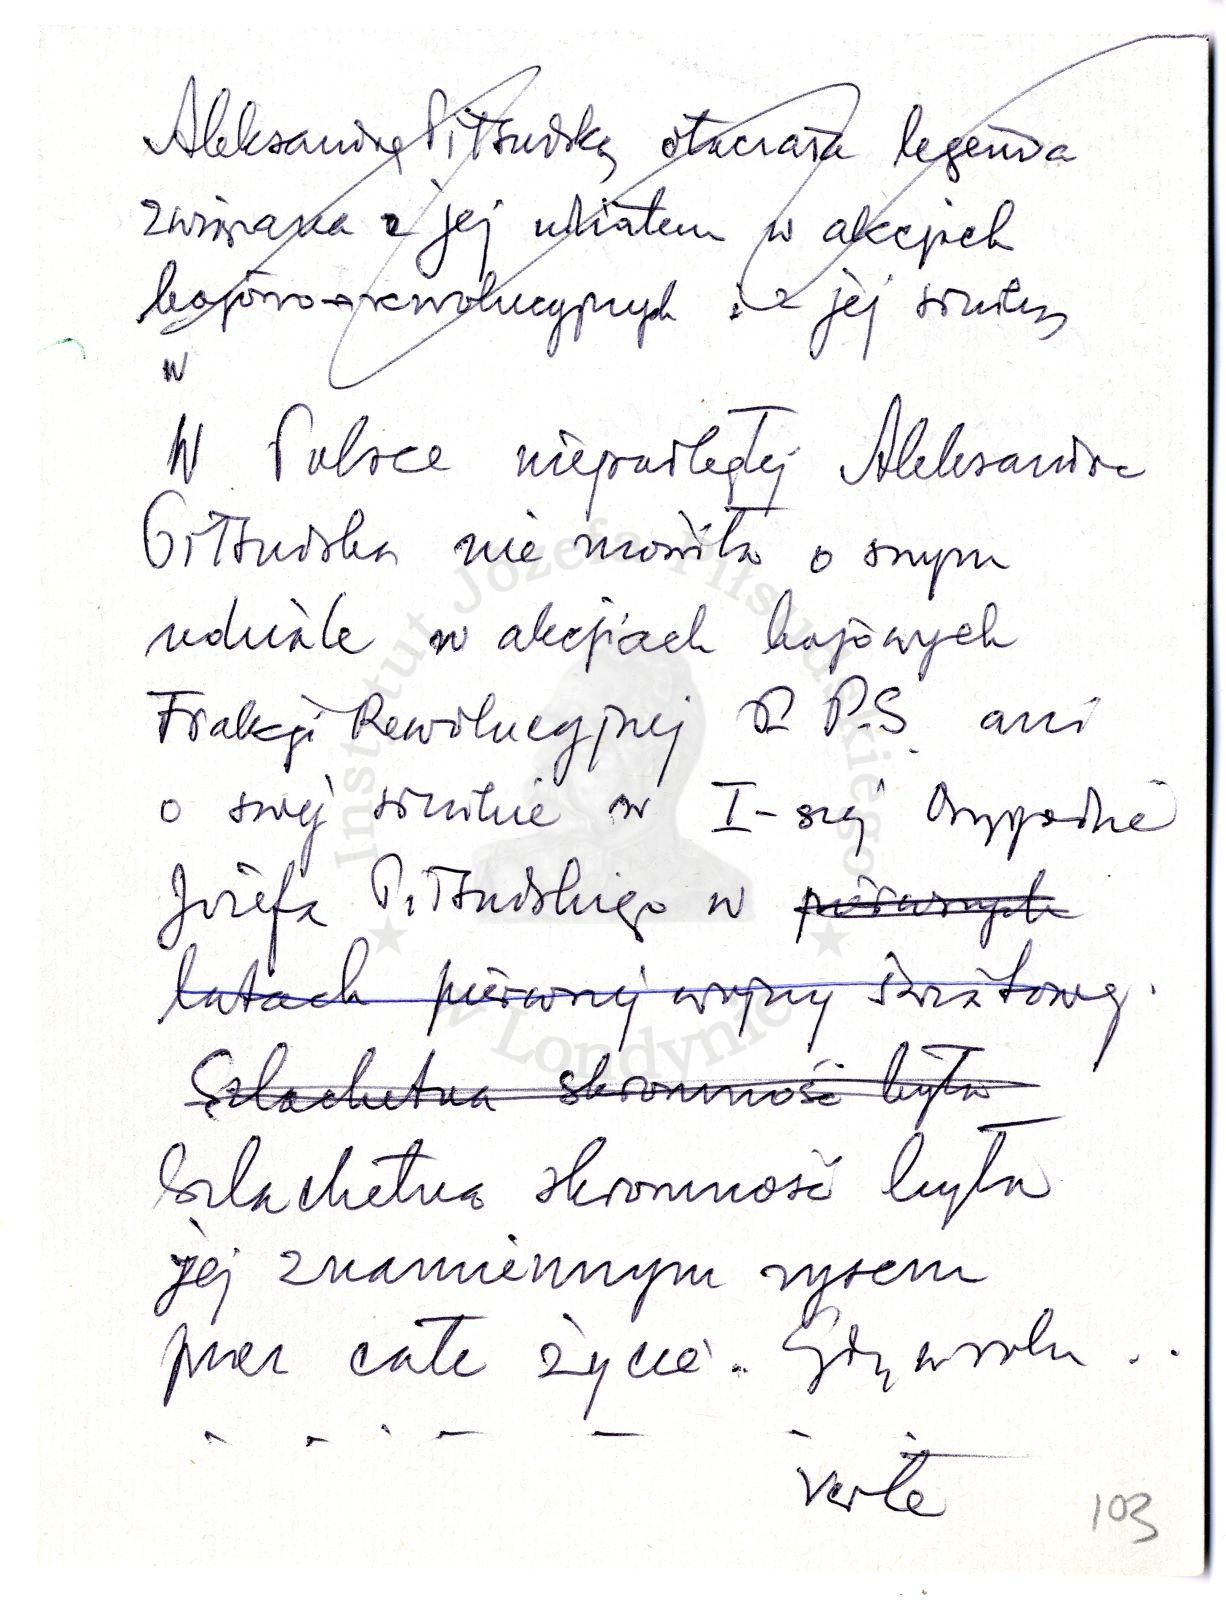 Aleksandrę Piłsudską otaczała legenda
związana z jej udziałem w akcjach
bojowo-rewolucyjnych i z jej służbą
w
W Polsce niepodległej Aleksandra
Piłsudska nie mówiła o swym
udziale w akcjach bojowych
Frakcji Rewolucyjnej P.P.S. ani
o swej służbie w I-szej Brygadzie
Józefa Piłsudskiego w pierwszych
latach pierwszej wojny światowej.
Szlachetna skromność była
Szlachetna skromność była
jej znamiennym rysem
przez całe życie. Gdy w roku . .
verte
103
Instytut Józefa Piłsudskiego
w Londynie